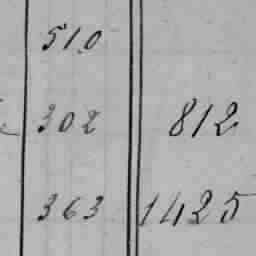 510
302 812
363 1425